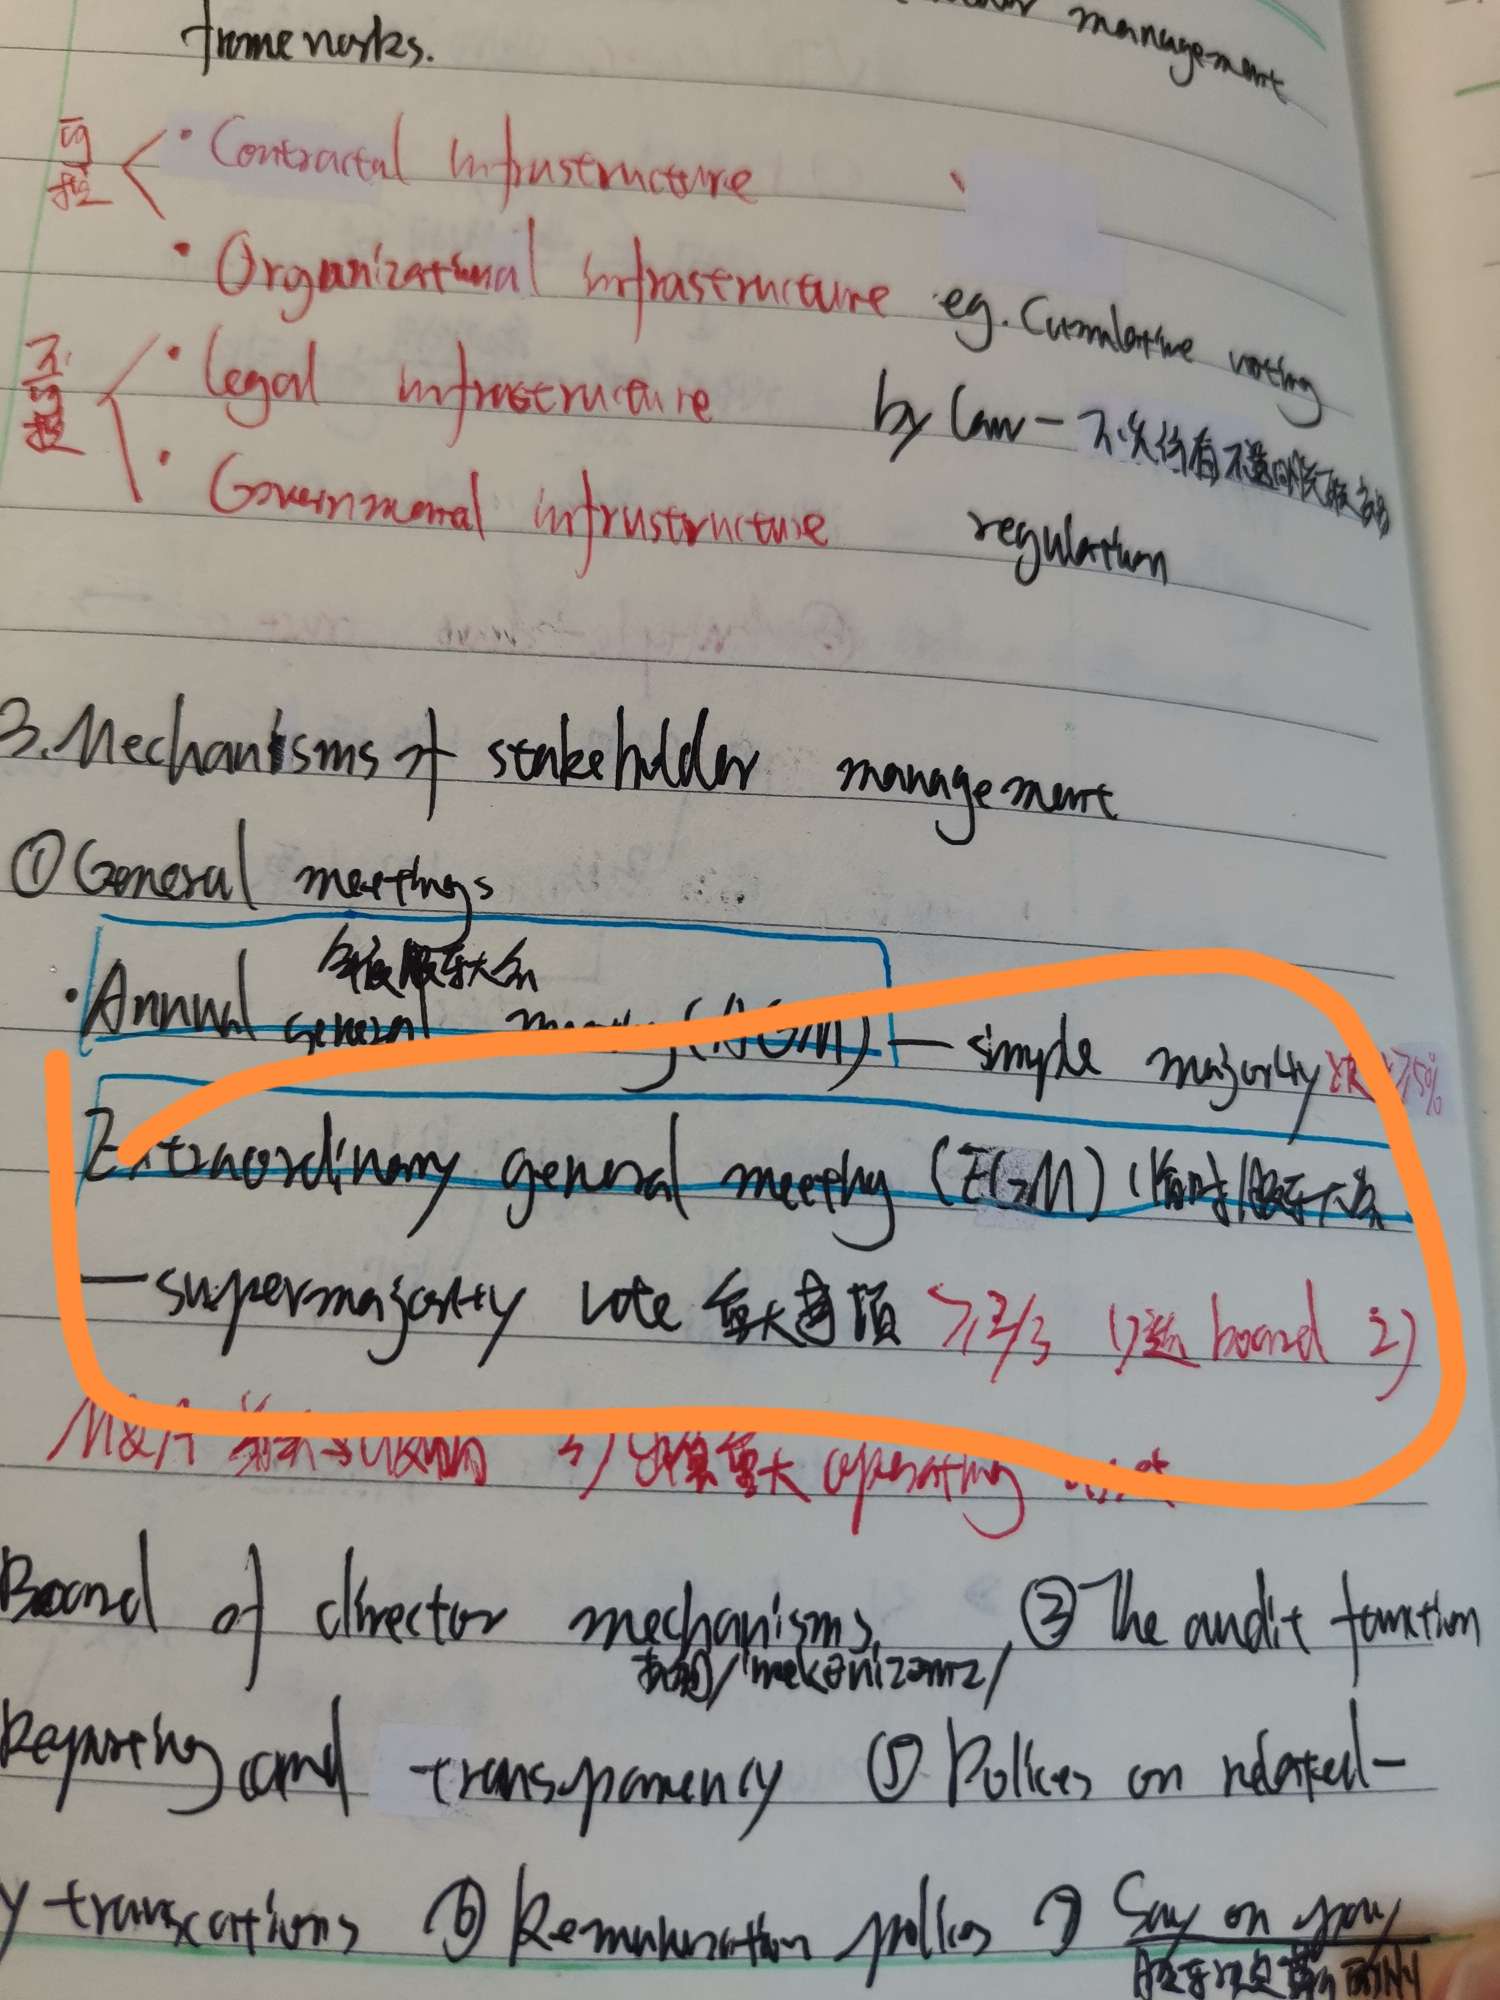 management
frameworks.
可控 • Contractal infrustructure
• Organizational infrastructure eg. Cumulative voting
不可控 • legal infrustructure by law - 不
• Governmental infrustructure regulation
3. Mechanisms of stakeholder management
① General meetings
年度股东大会
• Annual general (AGM) — simple majority
Extraordinary general meeting (EGM) (临时股东大会
— supermajority vote 重大事项 ≥2/3 1) 选 board 2)
M&A 3) 决策重大 operating
Board of director mechanisms, ③ The audit function
/'mekənizəmz/
Reporting and transparency ⑤ Polices on related-
y transcations ⑥ Remuneration polices ⑦ Say on pay